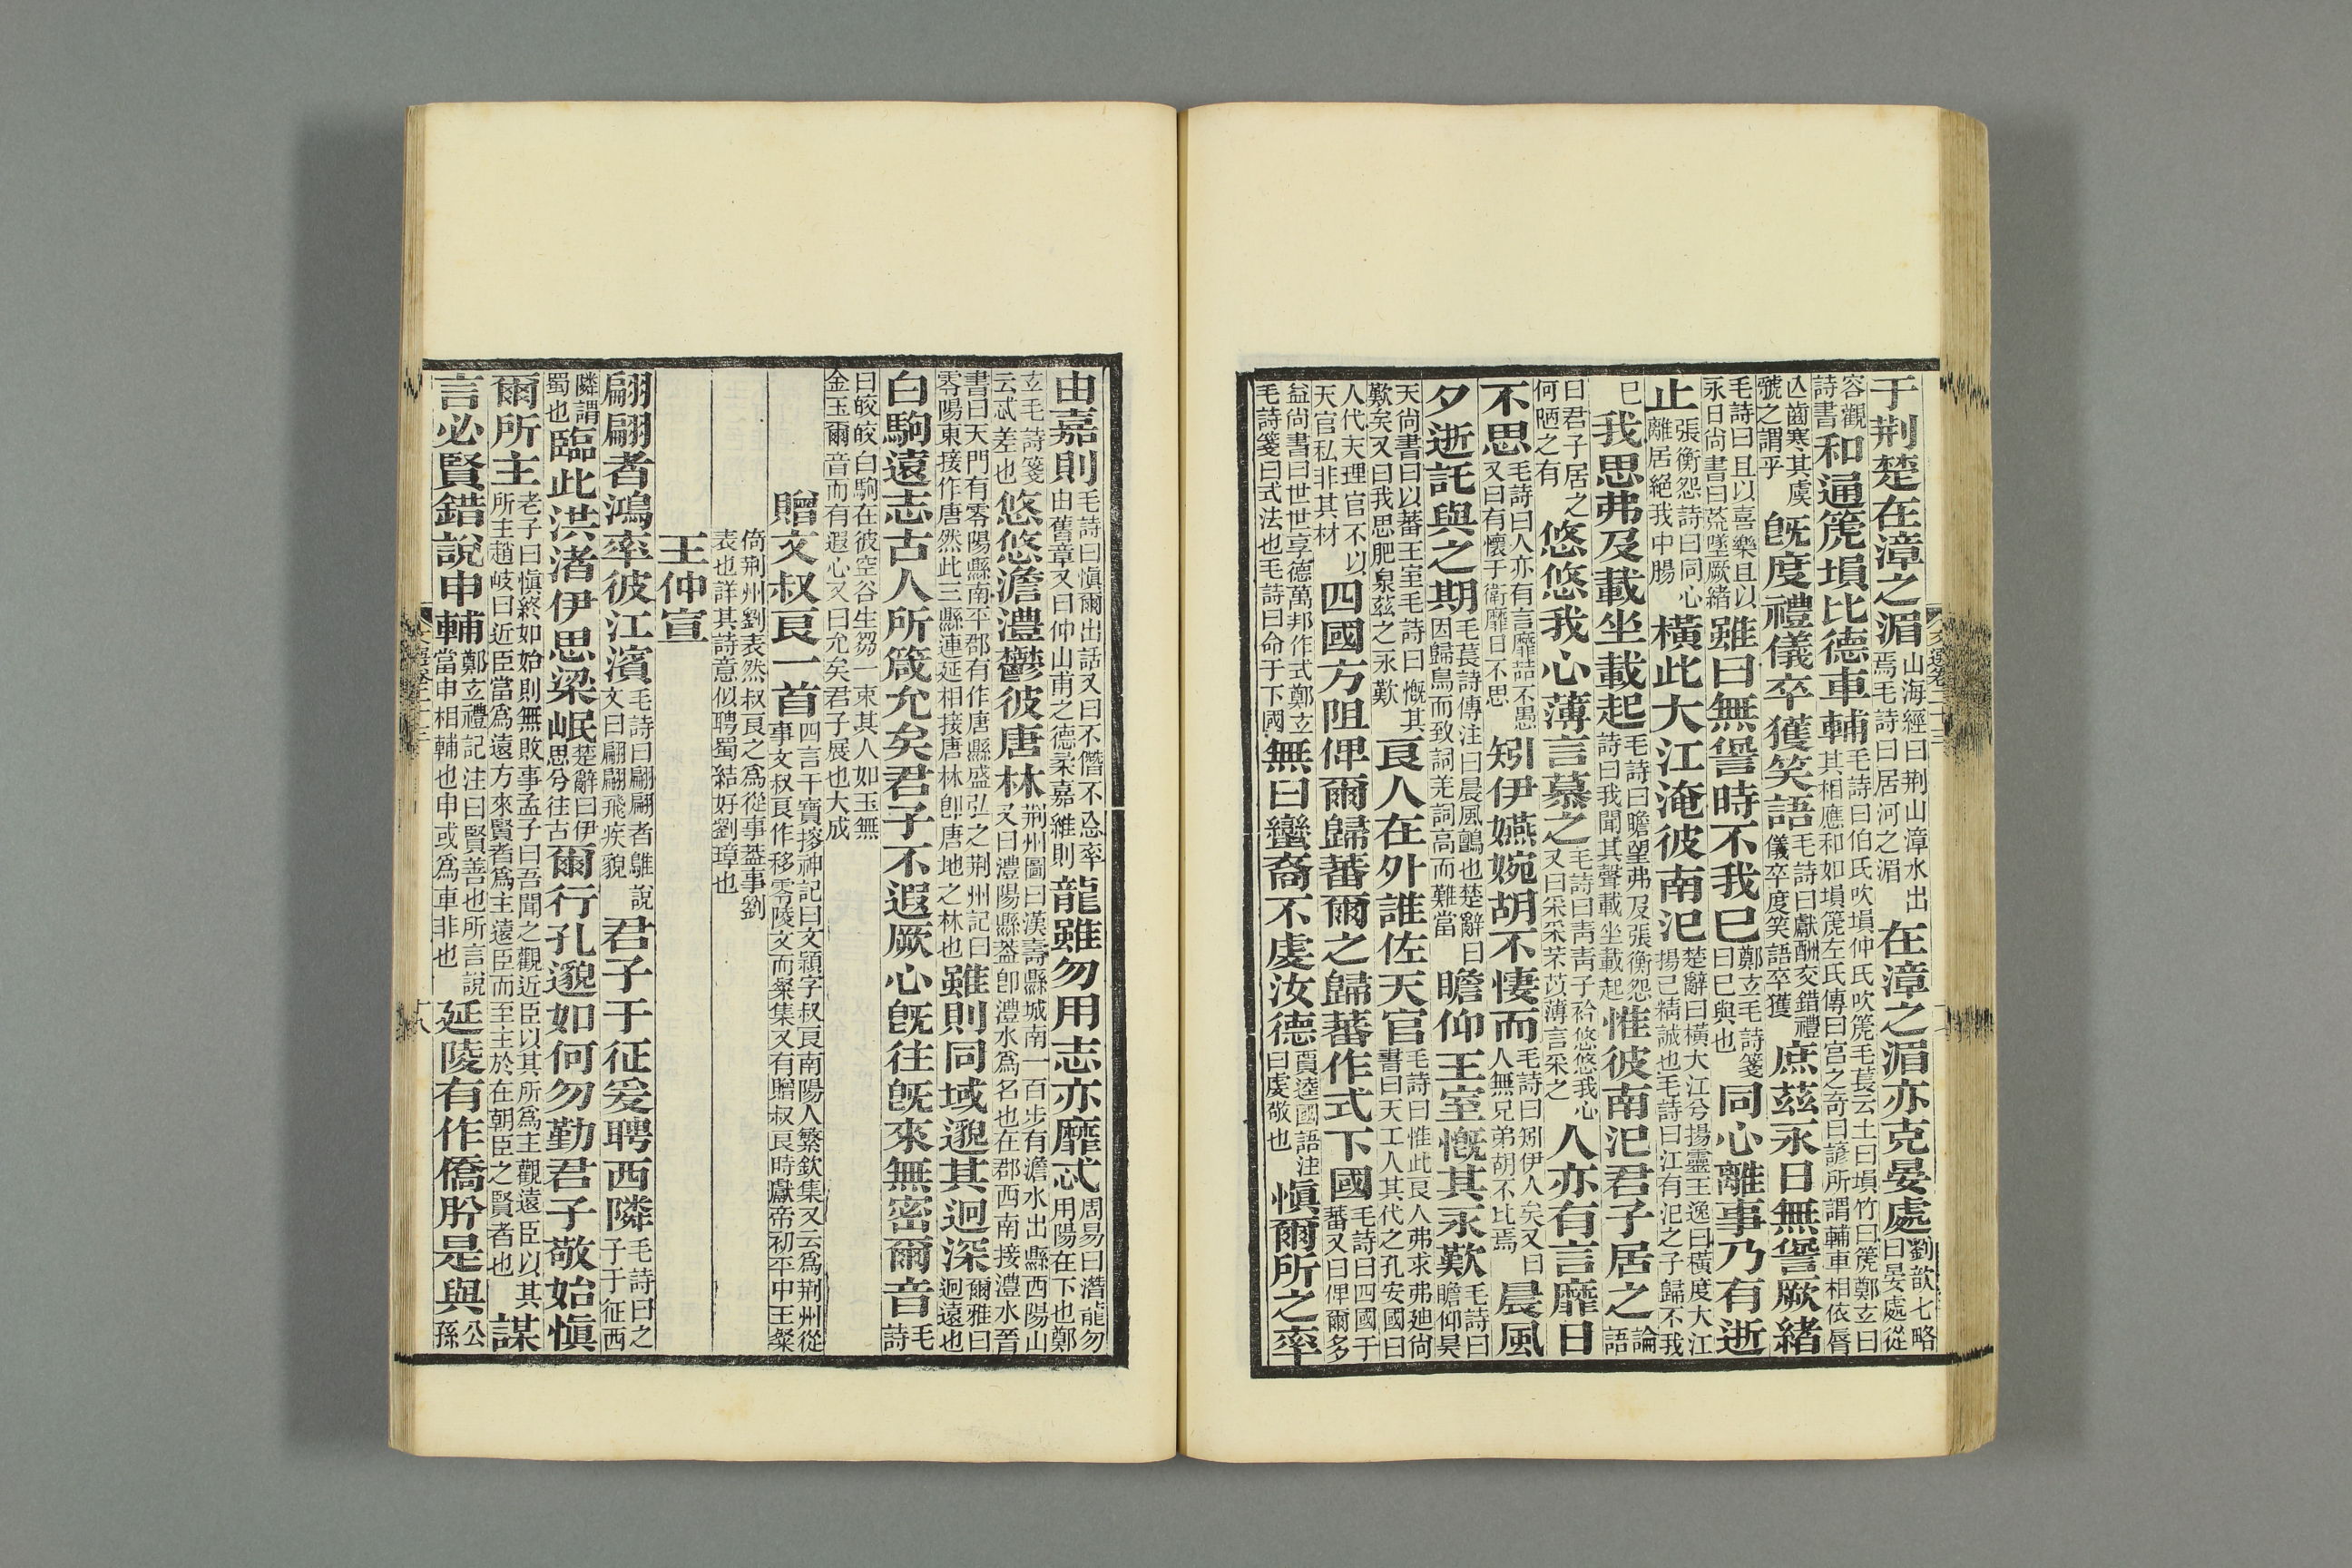 于荆楚在漳之湄山海經曰荆山漳水出焉毛詩曰居河之湄在漳之湄亦克晏處劉歆七略曰晏處從
容觀詩書和通篪塤比德車輔毛詩曰伯氏吹塤仲氏吹篪毛萇云土曰塤竹曰篪鄭玄曰其相應和如塤篪左氏傳曰宫之奇曰諺所謂輔車相依脣
亾齒寒其虞虢之謂乎旣度禮儀卒獲笑語毛詩曰獻酬交錯禮儀卒度笑語卒獲庶茲永日無諐厥緒
毛詩曰且以喜樂且以永日尙書曰荒墜厥緒雖曰無諐時不我已鄭玄毛詩箋曰已與也同心離事乃有逝
止張衡怨詩曰同心離居絕我中腸橫此大江淹彼南汜楚辭曰橫大江兮揚靈王逸曰橫度大江揚已精誠也毛詩曰江有汜之子歸不我
已我思弗及載坐載起毛詩曰瞻望弗及張衡怨詩曰我聞其聲載坐載起惟彼南汜君子居之論語
曰君子居之何陋之有悠悠我心薄言慕之毛詩曰靑靑子衿悠悠我心又曰采采芣苢薄言采之人亦有言靡日
不思毛詩曰人亦有言靡喆不愚又曰有懷于衛靡日不思矧伊嬿婉胡不悽而毛詩曰矧伊人矣又曰人無兄弟胡不比焉晨風
夕逝託與之期毛萇詩傳注曰晨風鸇也楚辭曰因歸鳥而致詞羌詞高而難當瞻仰王室慨其永歎毛詩曰瞻仰昊
天尙書曰以蕃王室毛詩曰慨其歎矣又曰我思肥泉茲之永歎良人在外誰佐天官毛詩曰惟此良人弗求弗迪尙書曰天工人其代之孔安國曰
人代天理官不以天官私非其材四國方阻俾爾歸蕃爾之歸蕃作式下國毛詩曰四國于蕃又曰俾爾多
益尙書曰世世享德萬邦作式鄭玄毛詩箋曰式法也毛詩曰命于下國無曰蠻裔不虔汝德賈逵國語注曰虔敬也愼爾所之率
由嘉則毛詩曰愼爾出話又曰不僭不忒率由舊章又曰仲山甫之德柔嘉維則龍雖勿用志亦靡忒周易曰潛龍勿用陽在下也鄭
玄毛詩箋云忒差也悠悠澹澧鬱彼唐林荆州圖曰漢壽縣城南一百步有澹水出縣西陽山又曰澧陽縣葢卽澧水爲名也在郡西南接澧水晉
書曰天門有零陽縣南平郡有作唐縣盛弘之荆州記曰零陽東接作唐然此三縣連延相接唐林卽唐地之林也雖則同域邈其迥深爾雅曰迥遠也
白駒遠志古人所箴允矣君子不遐厥心旣往旣來無密爾音毛詩
曰皎皎白駒在彼空谷生芻一束其人如玉無金玉爾音而有遐心又曰允矣君子展也大成
贈文叔良一首四言干寶搜神記曰文穎字叔良南陽人繁欽集又云爲荆州從事文叔良作移零陵文而粲集又有贈叔良詩獻帝初平中王粲
倚荆州劉表然叔良之爲從事葢事劉表也詳其詩意似聘蜀結好劉璋也
王仲宣
翩翩者鴻率彼江濱毛詩曰翩翩者鵻說文曰翩翩飛疾貌君子于征爰聘西隣毛詩曰之子于征西
隣謂蜀也臨此洪渚伊思梁岷楚辭曰伊思兮往古爾行孔邈如何勿勤君子敬始愼
爾所主老子曰愼終如始則無敗事孟子曰吾聞之觀近臣以其所爲主觀遠臣以其所主趙岐曰近臣當爲遠方來賢者爲主遠臣而至主於在朝臣之賢者也謀
言必賢錯說申輔鄭玄禮記注曰賢善也所言說當申相輔也申或爲車非也延陵有作僑肸是與公孫
文選卷二十三
十八